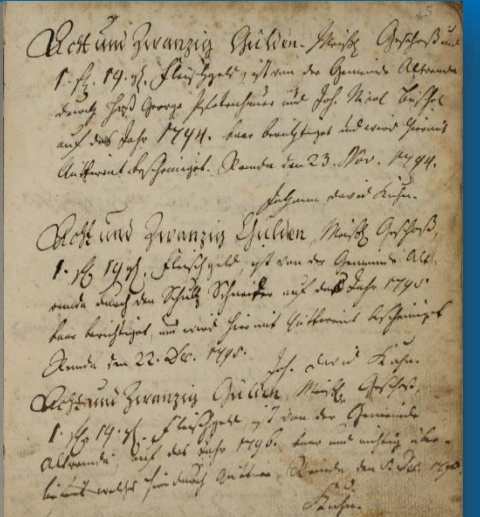 Acht und Zwanzig Gülden. Meißl. Geschoß und
1. fl. 19. gl. Fleischgeld, ist von der Gemeinde Altremda
durch George und Joh. Nicol
auf das Jahr 1794. baar berichtiget und wird hiermit
quittirent bescheiniget. Remda den 23. Nov. 1794.
Johann David Kuhn.
Acht und Zwanzig Gülden, Meißl. Geschoß,
1. fl. 19 gl. Fleischgeld, ist von der Gemeinde Alt-
remda durch den Schulz Schneider auf das Jahr 1795
baar berichtiget, und wird hiermit quittirent bescheinigt
Remda den 22. Dec. 1795. Joh. David Kuhn.
Acht und Zwanzig Gülden, Meißl. Geschoß,
1. fl. 19. gl. Fleischgeld ist von der Gemeinde
Altremda auf das Jahr 1796. baar und richtig über-
welches hierdurch Remda den Dec. 1796
Kuhn.